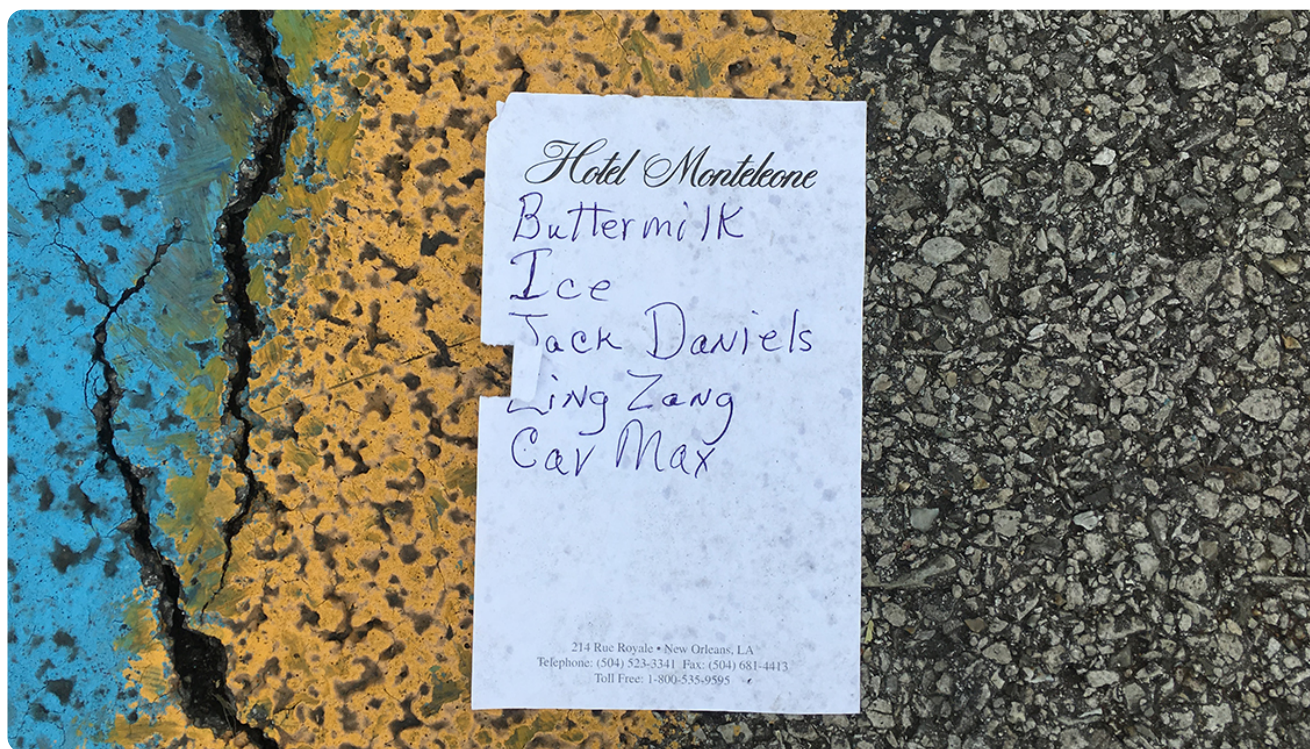 Hotel Monteleone
Buttermilk
Ice
Jack Daniels
Zing Zang
Car Max
214 Rue Royale • New Orleans, LA
Telephone: (504) 523-3341 Fax: (504) 681-4413
Toll Free: 1-800-535-9595